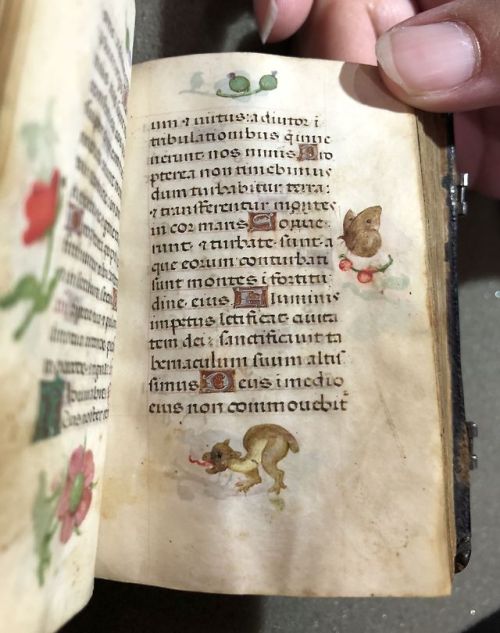 um ⁊ uirtus: adiutor i
tribulationibus q̄ inue
nerunt nos nimis Pro
pterea non timebimus
dum turbabitur terra:
⁊ transferentur montes
in cor maris Sonue
runt ⁊ turbate sunt a
que eorum conturbati
sunt montes i fortitu
dine eius Fluminis
impetus letificat ciuita
tem dei: sanctificauit ta
bernaculum suum altis
simus Deus i medio
eius non commouebit